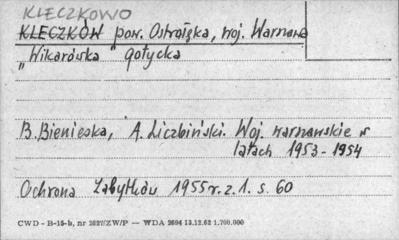 KLECZKOWO
KLECZKÓW pow. Ostrołęka, woj. Warszawa
"Wikarówka" gotycka
B. Bieniecka, A. Liczbiński. Woj. warszawskie w
latach 1953-1954
Ochrona Zabytków 1955 r. z. 1. s. 60
CWD - B-15-b, nr 2827/ZW/P — WDA 2604 13.12.62 1.700.000